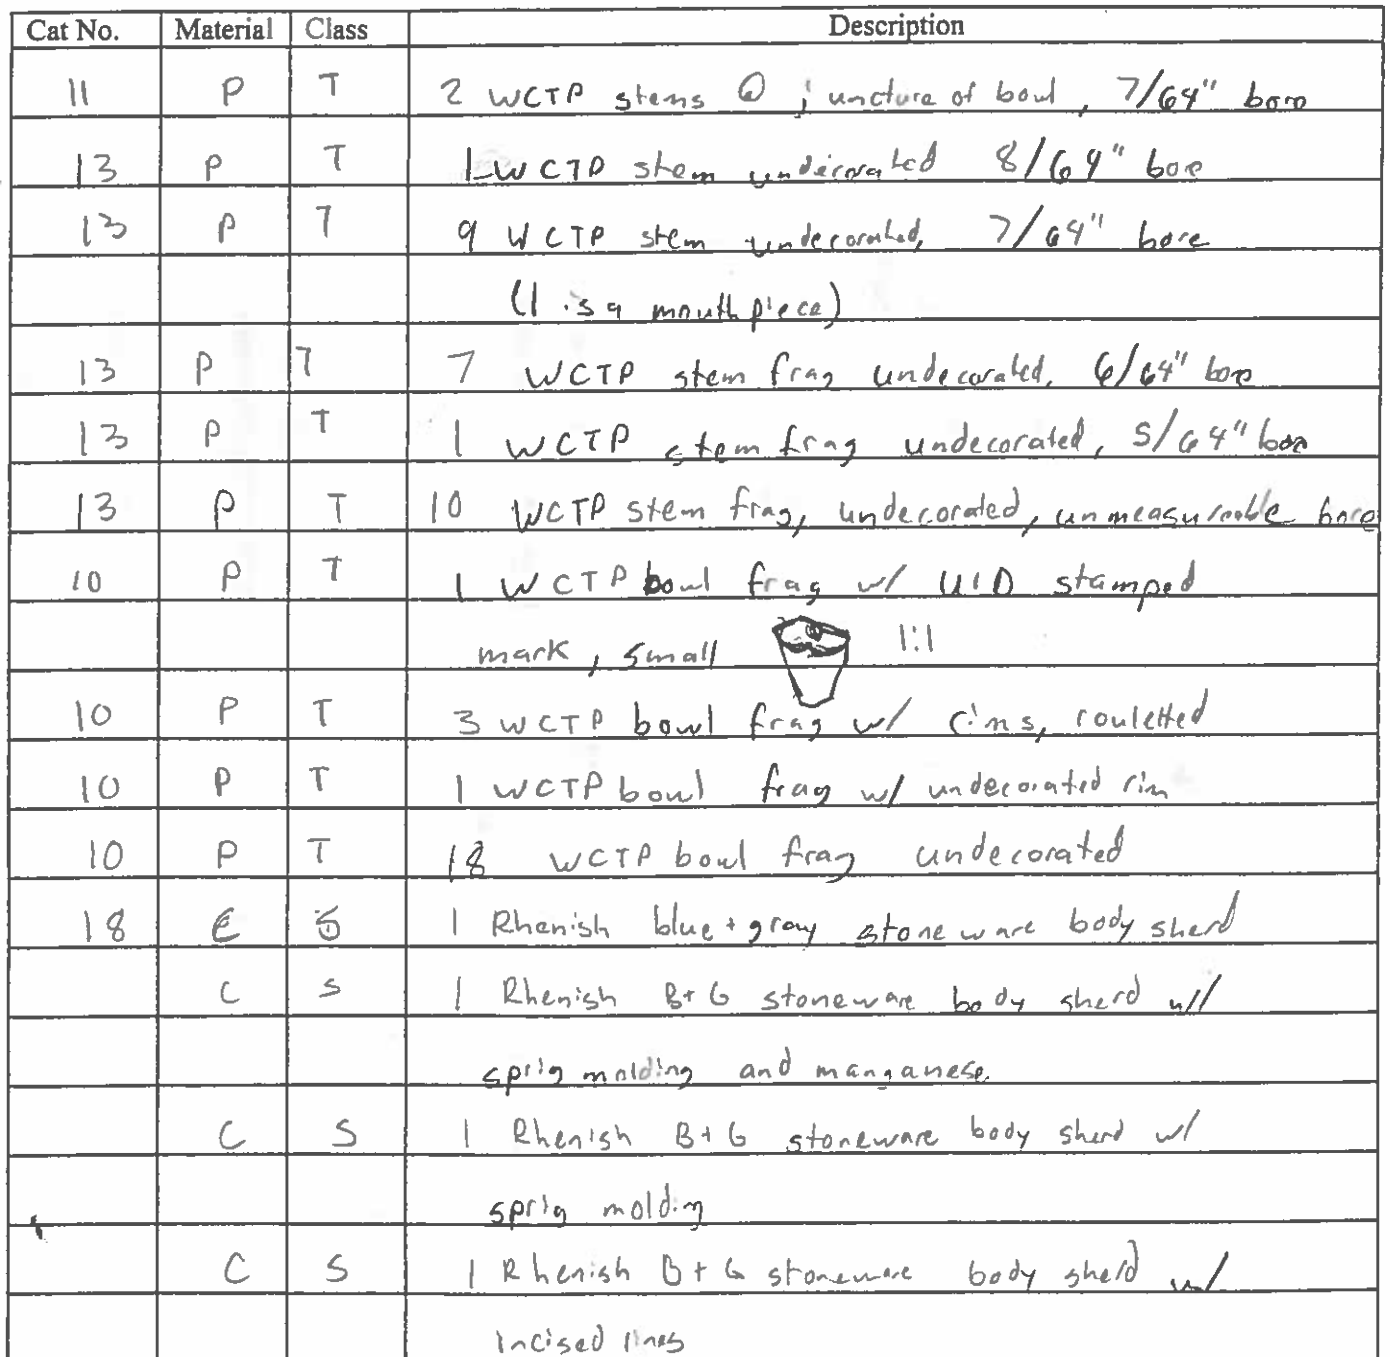 Cat No. Material Class Description
11 P T 2 WCTP stems @ juncture of bowl, 7/64" bore
13 P T 1 WCTP stem undecorated 8/64" bore
13 P T 9 WCTP stem undecorated, 7/64" bore
(1 is a mouthpiece)
13 P T 7 WCTP stem frag undecorated, 6/64" bore
13 P T 1 WCTP stem frag undecorated, 5/64" bore
13 P T 10 WCTP stem frag, undecorated, unmeasureable bore
10 P T 1 WCTP bowl frag w/ UID stamped
mark, small 1:1
10 P T 3 WCTP bowl frag w/ rims, rouletted
10 P T 1 WCTP bowl frag w/ undecorated rim
10 P T 18 WCTP bowl frag undecorated
18 C S 1 Rhenish blue + gray stoneware body sherd
C S 1 Rhenish B+G stoneware body sherd w/
sprig molding and manganese
C S 1 Rhenish B+G stoneware body sherd w/
sprig molding
C S 1 Rhenish B+G stoneware body sherd w/
incised lines